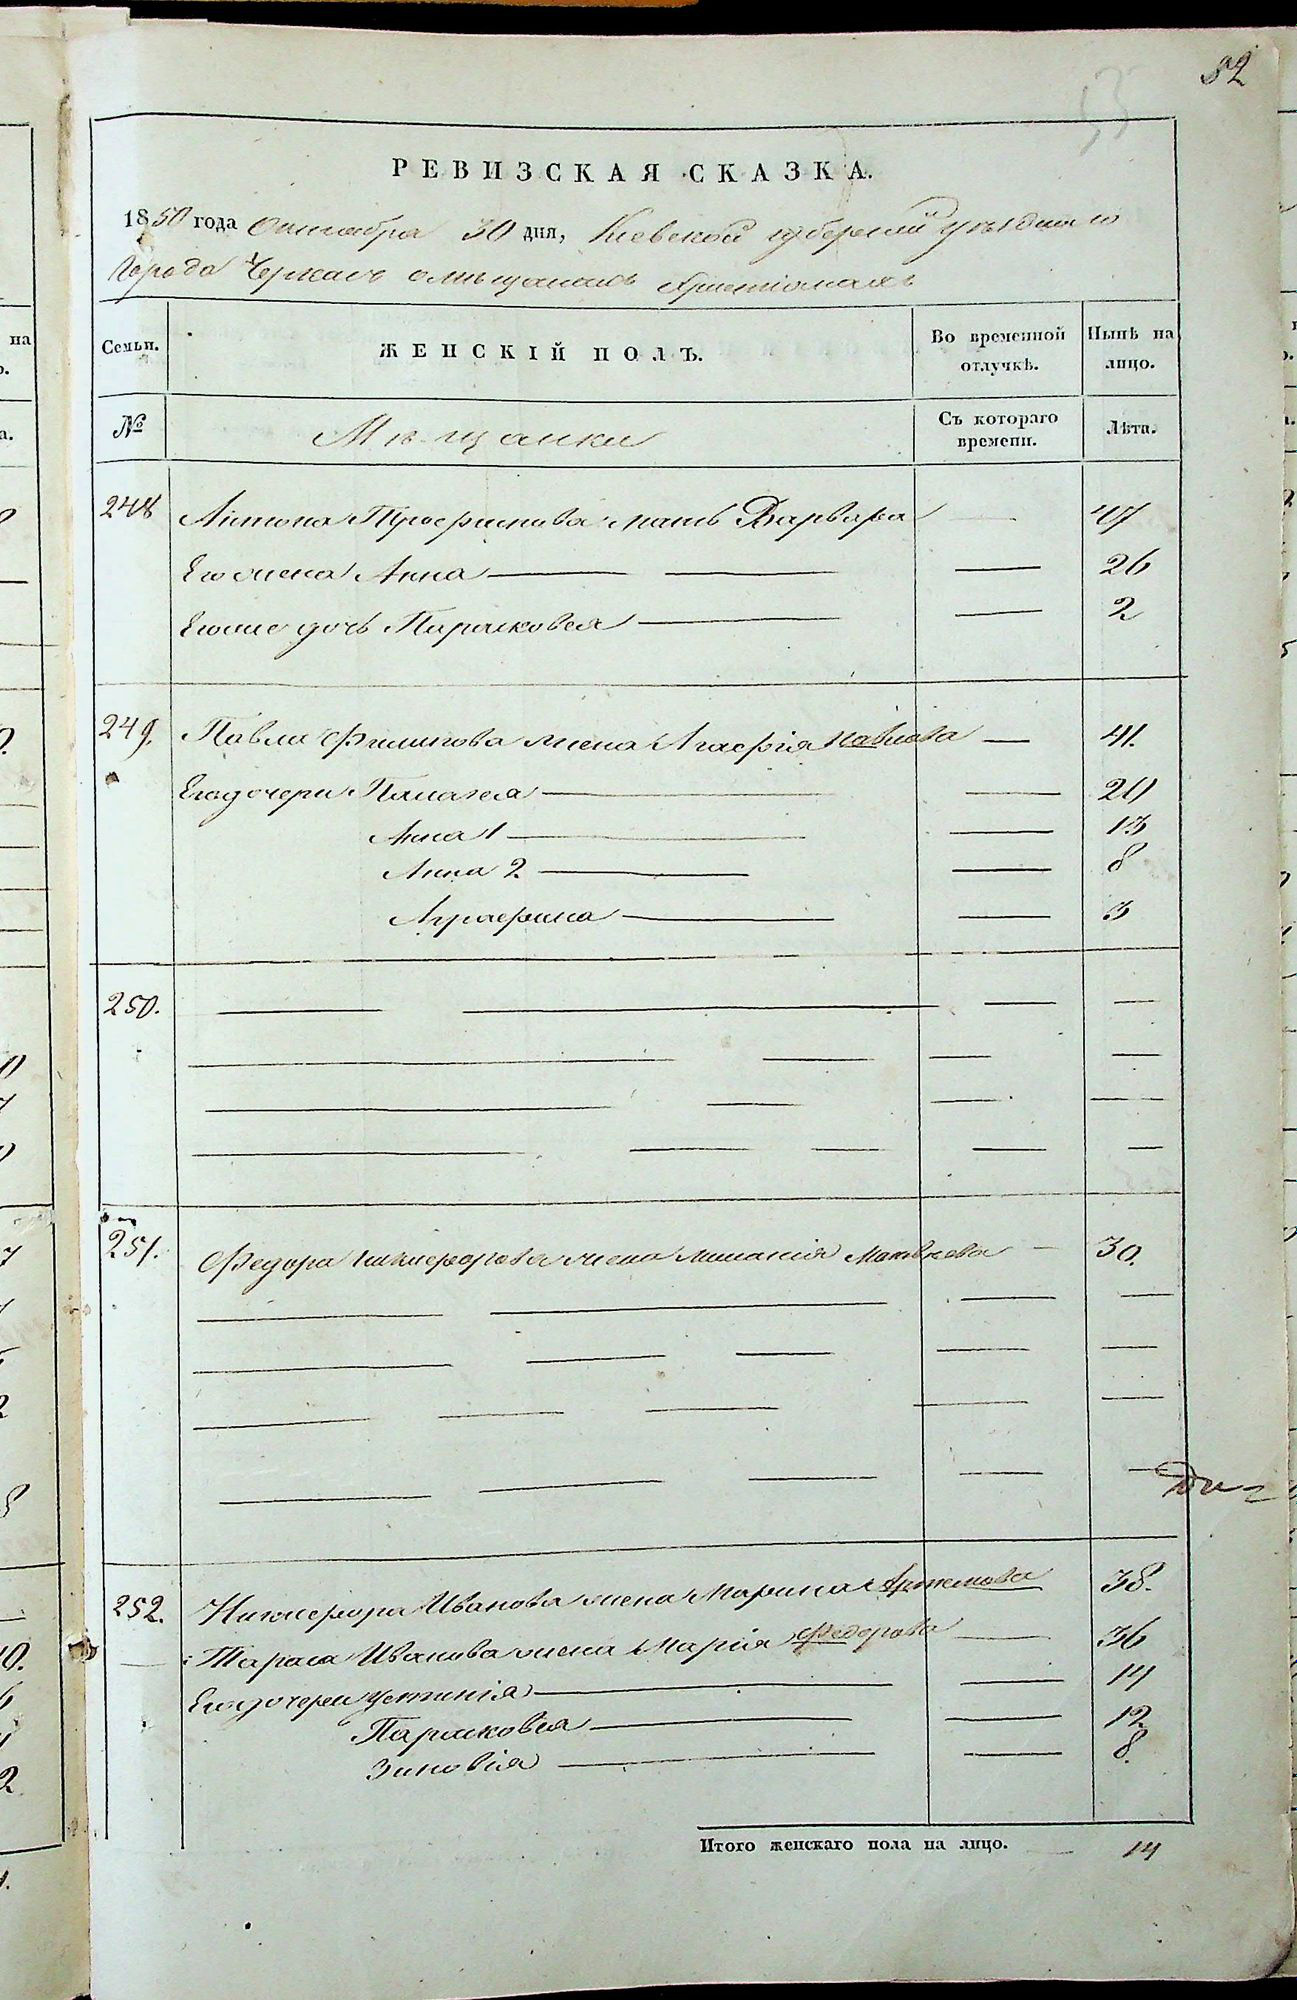 52
53
РЕВИЗСКАЯ СКАЗКА.
1850 года Октября 30 дня, Киевской губернии уезднаго
Города Черкасъ о мѣщанахъ Христіанахъ
Семьи. ЖЕНСКІЙ ПОЛЪ. Во временной отлучкѣ. Нынѣ на лицо.
№ Мѣщанки Съ котораго времени. Лѣта.
248 Антона Трофимова мать Варвара — 47
Его жена Анна — — — 26
Егоже дочь Парасковея — — 2
249. Павла Филипова жена Агафія Павлова — 41.
Его дочери Пелагея — — 20
Анна 1 — — 13
Анна 2 — — 8
Аграфина — — 3
250. — — — —
— — — —
— — — —
— — — — —
251. Федора Никифорова жена Меланія Матвѣева — 30.
— — — —
— — — — —
— — — — —
— — — — —
252. Никифора Иванова жена Марина Артемова 38.
Тараса Иванова жена Марія Федорова — 36
Его дочери Устинія — — 14
Парасковея — — 12
Зиновія — — 8.
Итого женскаго пола на лицо. — 14